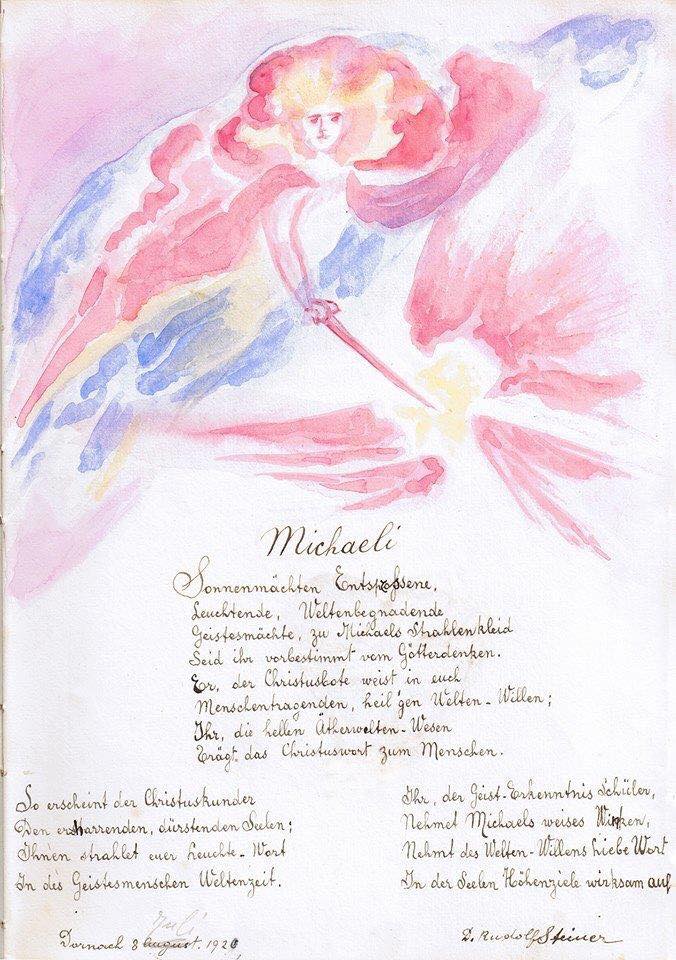 Michaeli
Sonnenmächten Entsprossene,
Leuchtende, Weltenbegnadende
Geistesmächte, zu Michaels Strahlenkleid
Seid ihr vorbestimmt vom Götterdenken.
Er, der Christusbote weist in euch
Menschentragenden, heil'gen Welten-Willen;
Ihr, die hellen Ätherwelten-Wesen
Trägt das Christuswort zum Menschen.
So erscheint der Christuskünder
Den erharrenden, dürstenden Seelen;
Ihnen strahlet euer Leuchte-Wort
In des Geistesmenschen Weltenzeit.
Ihr, der Geist-Erkenntnis Schüler,
Nehmet Michaels weises Winken,
Nehmt des Welten-Willens Liebe Wort
In der Seelen Höhenziele wirksam auf
Juli
Dornach 8 august. 192
D. Rudolf Steiner